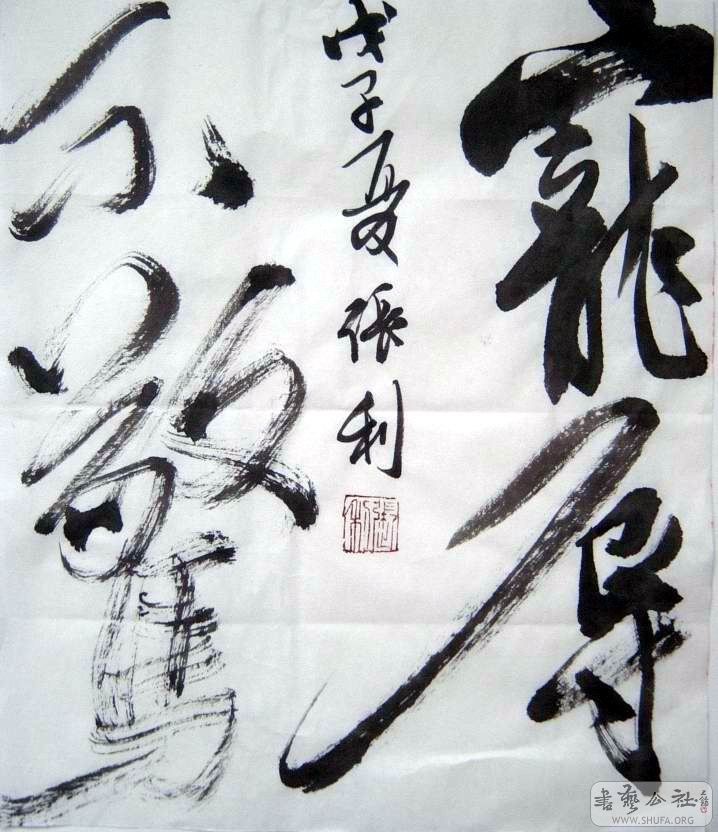 寵辱
不驚
戊子夏張利
張利
書藝公社
WWW.SHUFA.ORG